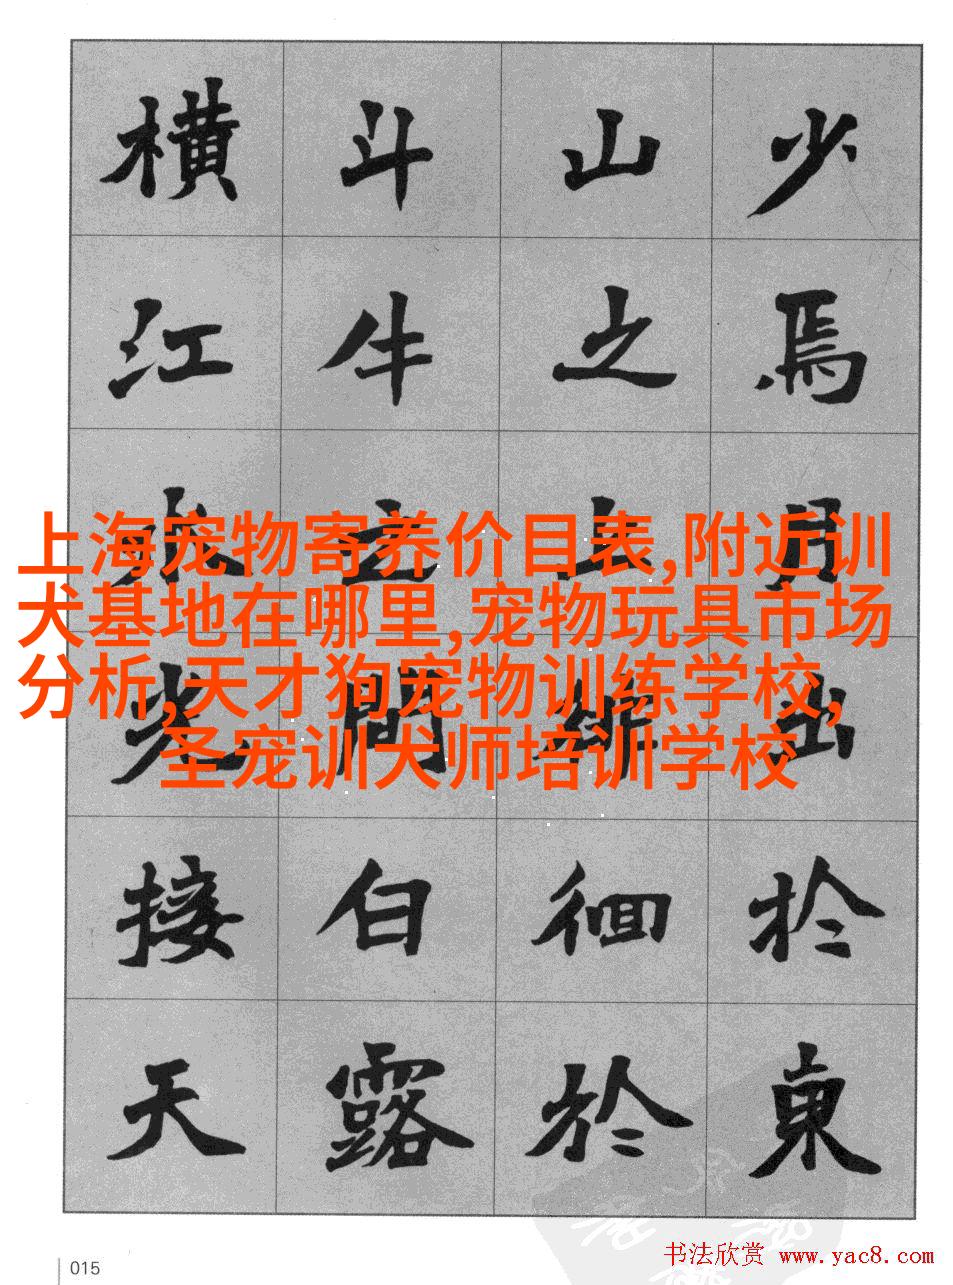 少焉月出於東
山之上徘徊於
斗牛之間白露
橫江水光接天
上海宠物寄养价目表,附近训
犬基地在哪里,宠物玩具市场
分析,天才狗宠物训练学校,
圣宠训犬师培训学校
015
书法欣赏 www.yac8.com